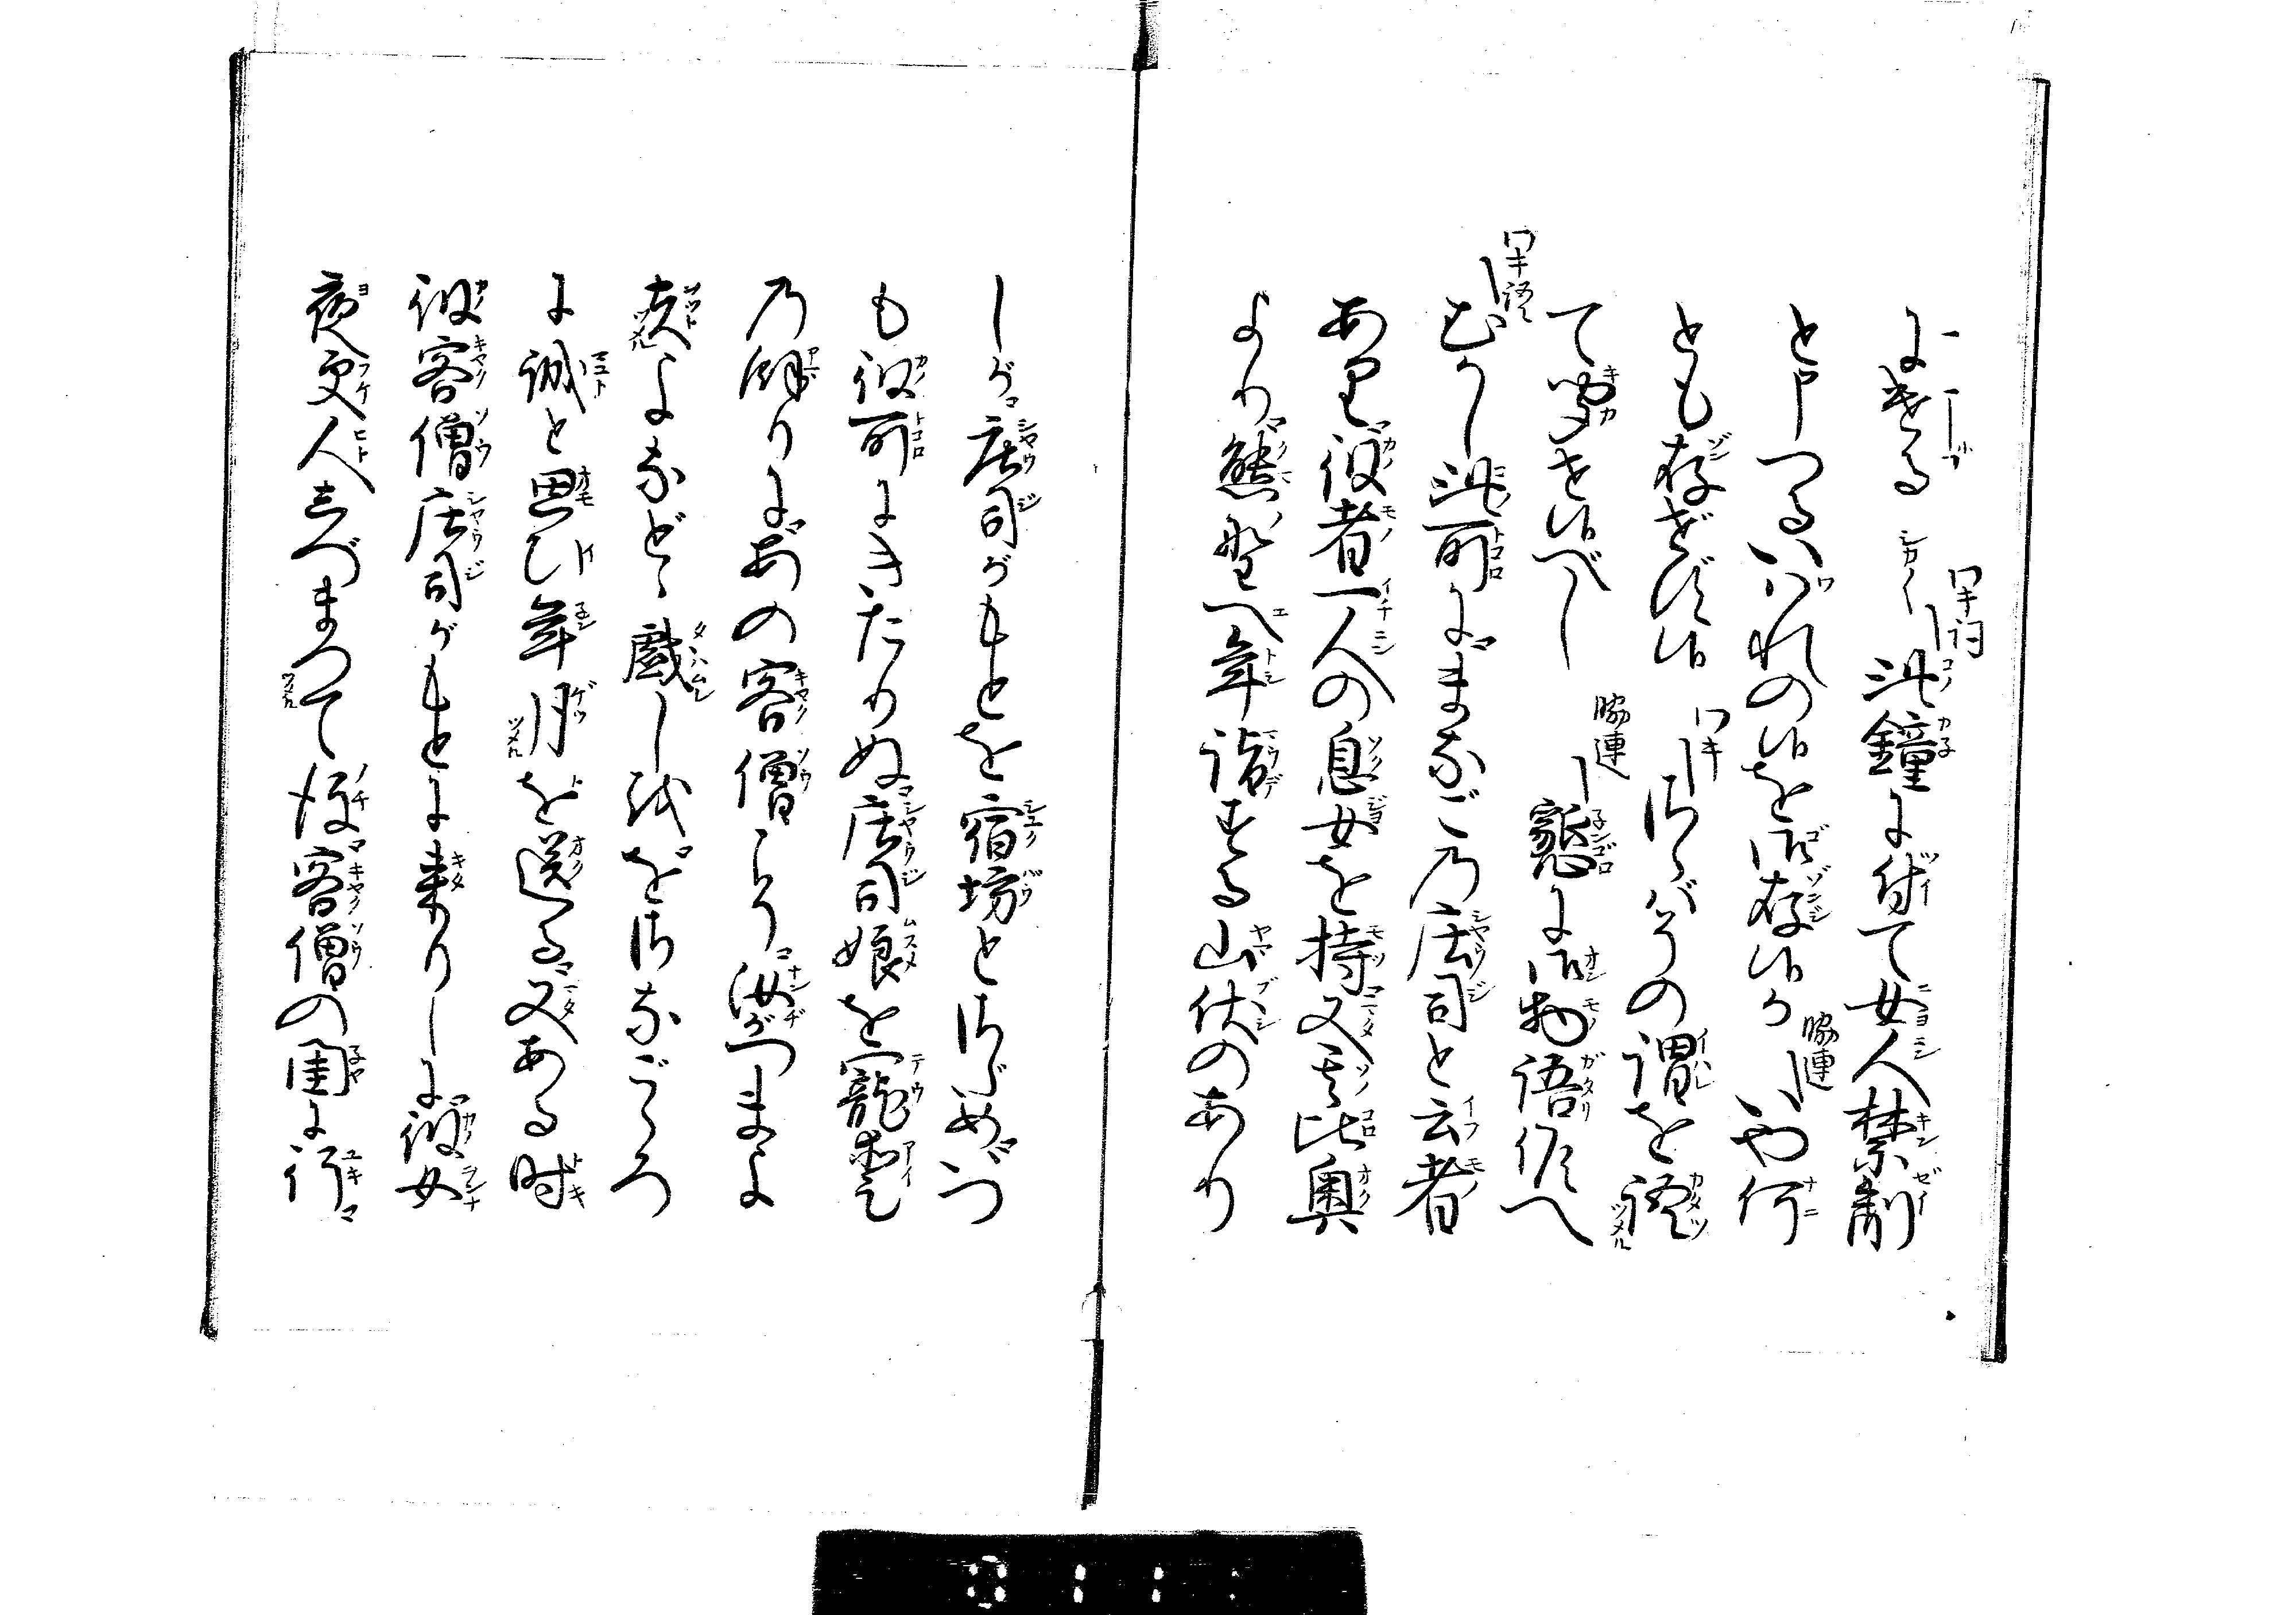 にける シカ〳〵 ワキ詞 此鐘に付て女人禁制
と申つるいはれの候を御存候か 脇連 いや何
とも存ぜず候 ワキ さらばかの謂を語
て聞せ候べし 脇連 懇に御物語候へ
ワキ語 むかし此所にまなごの庄司と云者
あり彼者一人の息女を持又其比奥
より熊野へ年詣する山伏のあり
しが庄司がもとを宿坊とさだめいつ
も彼所にきたりぬ庄司娘を寵愛
の餘りにあの客僧こそ汝がつまよ
夫よなどゝ戯しをおさなごころ
に誠と思ひ年月を送る又ある時
彼客僧庄司がもとに来りしに彼女
夜更人しづまつて後客僧の閨に行